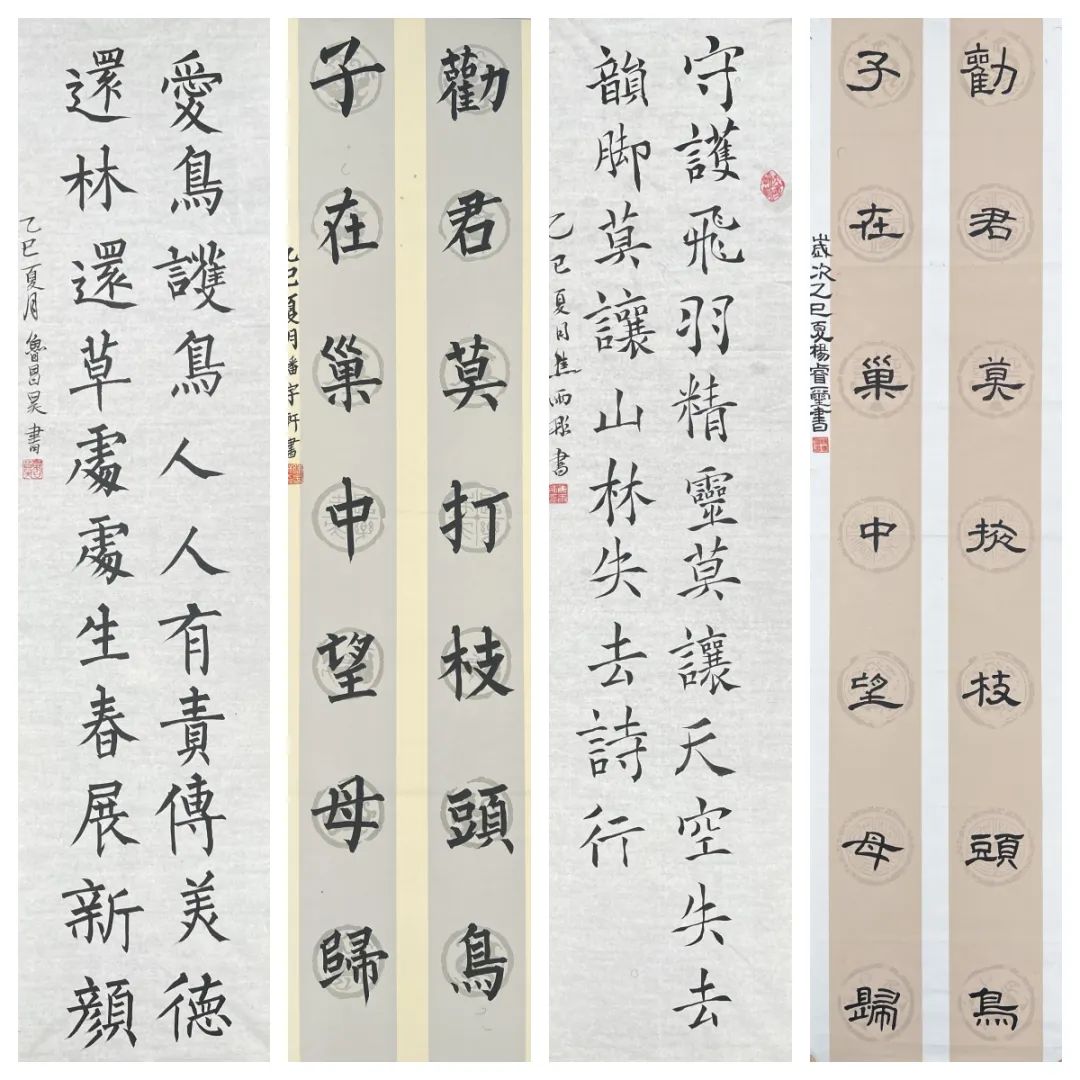 愛鳥護鳥人人有責傳美德
還林還草處處生春展新顏
乙巳夏月魯昌昊書
勸君莫打枝頭鳥
子在巢中望母歸
乙巳夏月潘宇軒書
守護飛羽精靈莫讓天空失去
韻脚莫讓山林失去詩行
乙巳夏月焦雨彤書
勸君莫扵枝頭鳥
子在巢中望母歸
歲次乙巳夏楊睿璽書